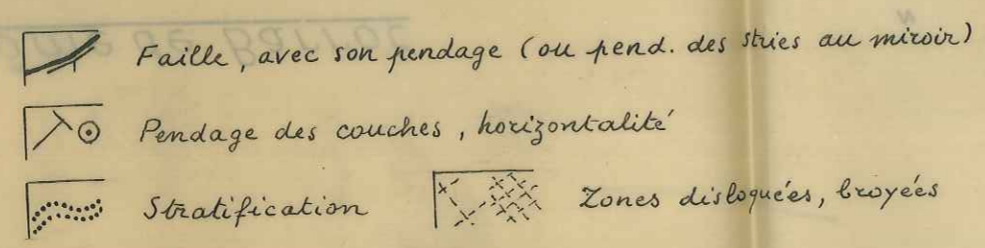 Faille, avec son pendage (ou pend. des stries au miroir)
Pendage des couches, horizontalité
Stratification
Zones disloquées, broyées